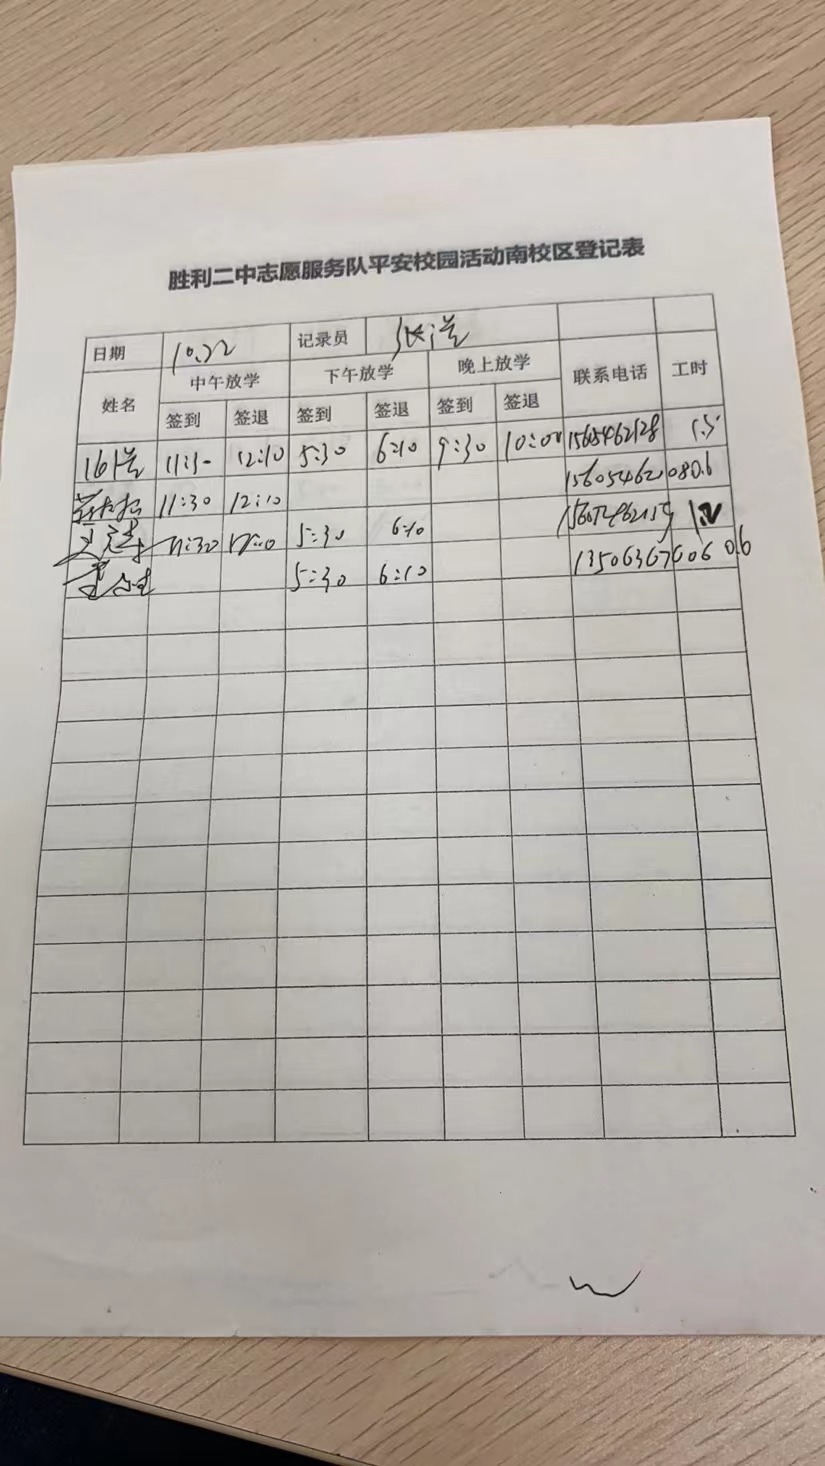 胜利二中志愿服务队平安校园活动南校区登记表
日期 10.22 记录员
姓名 中午放学 下午放学 晚上放学 联系电话 工时
签到 签退 签到 签退 签到 签退
11:30 12:10 5:30 6:10 9:30 10:00 1.5
11:30 12:10 15605462108 0.6
11:30 12:10 5:30 6:10
5:30 6:10 13506367606 0.6